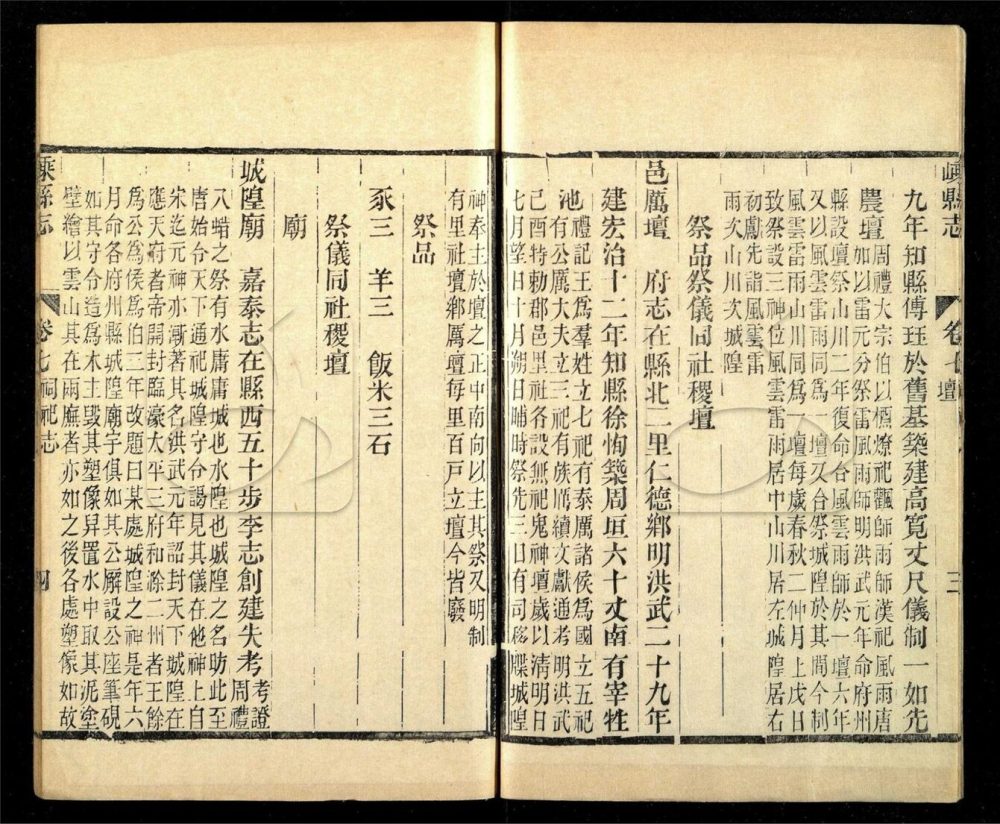 嵊縣志
卷七 壇
三
九年知縣傅珏於舊基築建高寬丈尺儀制一如先
農壇
周禮大宗伯以槱燎祀飌師雨師漢祀風雨唐
如以雷元分祭雷風雨師明洪武元年命府州
縣設壇祭山川二年復命合風雲雨師於一壇六年
又以風雲雷雨同爲一壇又合祭城隍於其間今制
風雲雷雨山川同爲一壇每歲春秋二仲月上戊日
致祭設三神位風雲雷雨居中山川居左城隍居右
初獻先詣風雲雷
雨次山川次城隍
祭品祭儀同社稷壇
邑厲壇 府志在縣北二里仁德鄉明洪武二十九年
建宏治十二年知縣徐恂築周垣六十丈南有宰牲
池
禮記王爲羣姓立七祀有泰厲諸侯爲國立五祀
有公厲大夫立三祀有族厲續文獻通考明洪武
己酉特勅郡邑里社各設無祀鬼神壇歲以淸明日
七月望日十月朔日晡時祭先三日有司移牒城隍
神奉主於壇之正中南向以主其祭又明制
有里社壇鄉厲壇每里百戸立壇今皆廢
祭品
豕三 羊三 飯米三石
祭儀同社稷壇
廟
城隍廟 嘉泰志在縣西五十步李志創建失考
考證
周禮
八蜡之祭有水庸庸城也水隍也城隍之名昉此至
唐始合天下通祀城隍守令謁見其儀在他神上自
宋迄元神亦漸著其名洪武元年詔封天下城隍在
應天府者帝開封臨濠太平三府和滁二州者王餘
爲公爲侯爲伯三年改題曰某處城隍之神是年六
月命各府州縣城隍廟宇俱如其公廨設公座筆硯
如其守令造爲木主毀其塑像舁置水中取其泥塗
壁繪以雲山其在兩廡者亦如之後各處塑像如故
嵊縣志
卷七 祠祀志
四